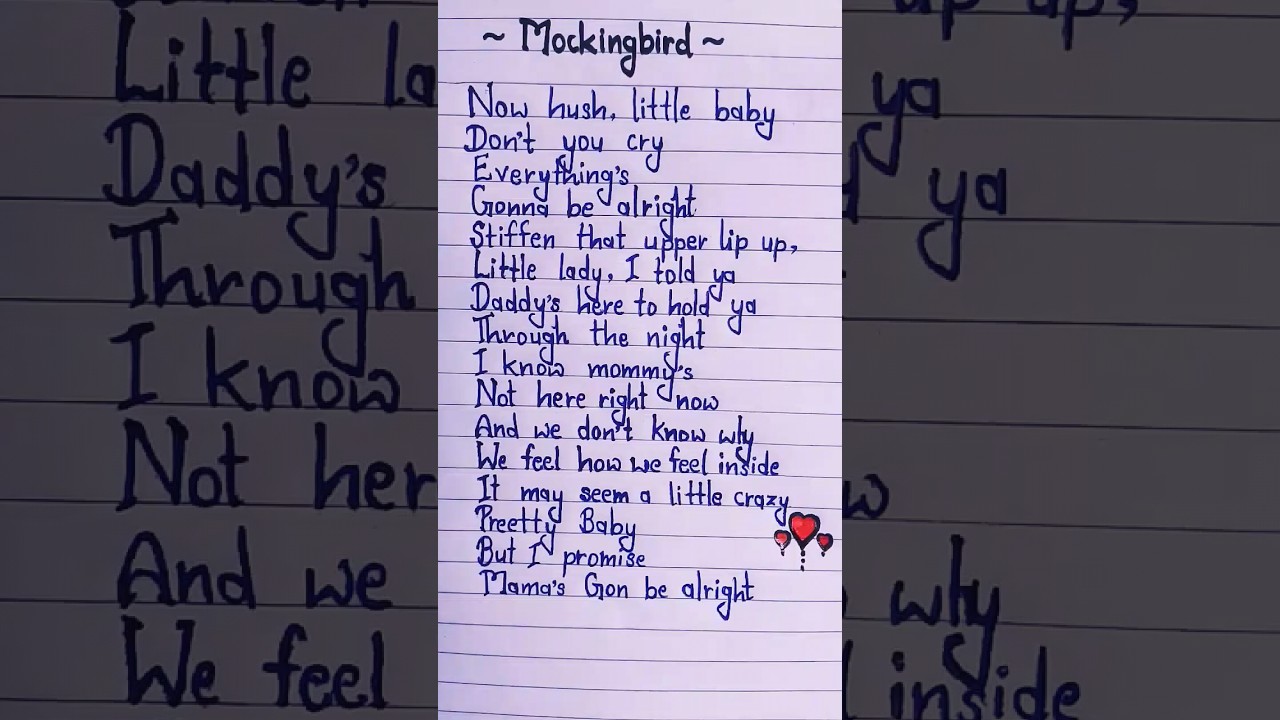 ~ Mockingbird ~
Now hush, little baby
Don't you cry
Everything's
Gonna be alright
Stiffen that upper lip up,
Little lady, I told ya
Daddy's here to hold ya
Through the night
I know mommy's
Not here right now
And we don't know why
We feel how we feel inside
It may seem a little crazy
Preetty Baby
But I promise
Mama's Gon be alright